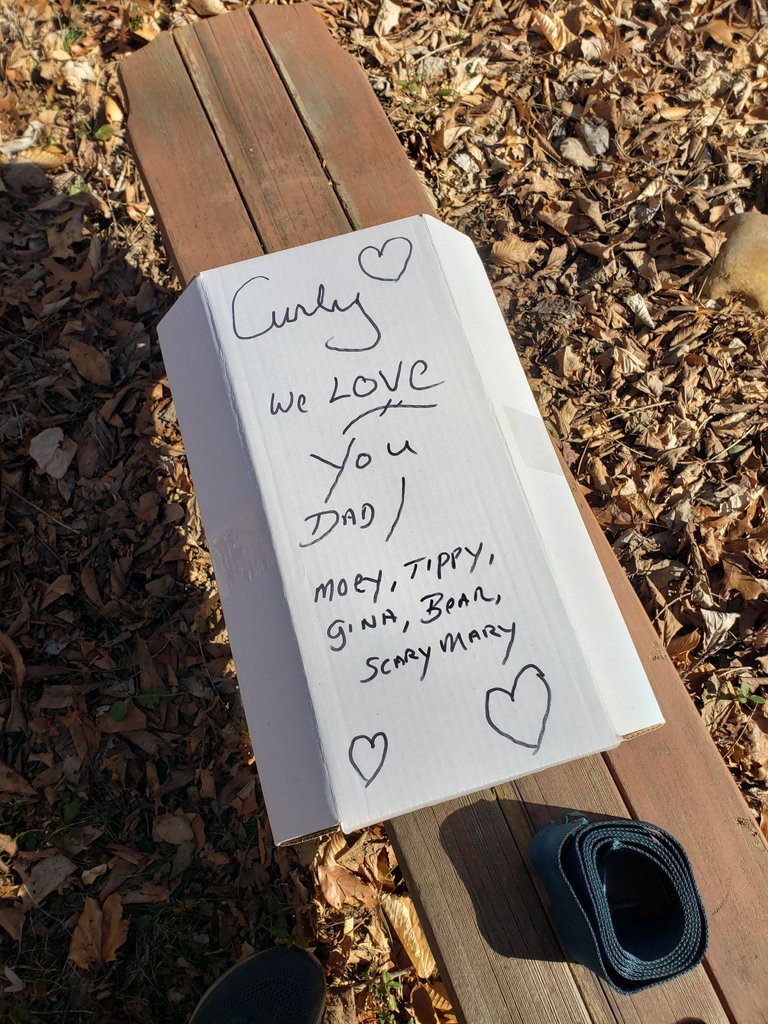 Curly
We LOVE
You
DAD!
MOEY, TIPPY,
GINA, BEAR,
SCARY MARY